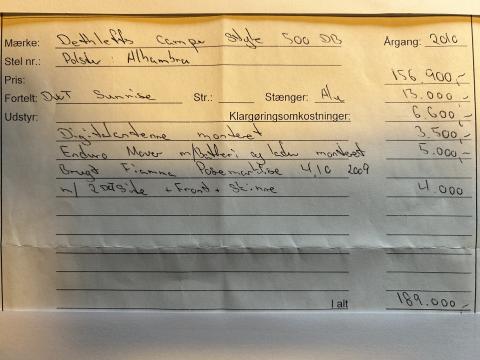 Mærke: Dethleffs Camper Style 500 DB Årgang: 2010
Stel nr.: Polster: Alhambra
Pris: 156.900,-
Fortelt: DWT Sunrise Str.: Stænger: Alu 13.000,-
Udstyr: Klargøringsomkostninger: 6.600,-
Digitalantenne monteret 3.500,-
Enduro Mover m/Batteri og lader monteret 5.000,-
Brugt Fiamma Posemarkise 4,10 2009
m/ 2 Side + Front + Skinne 4.000
I alt 189.000,-